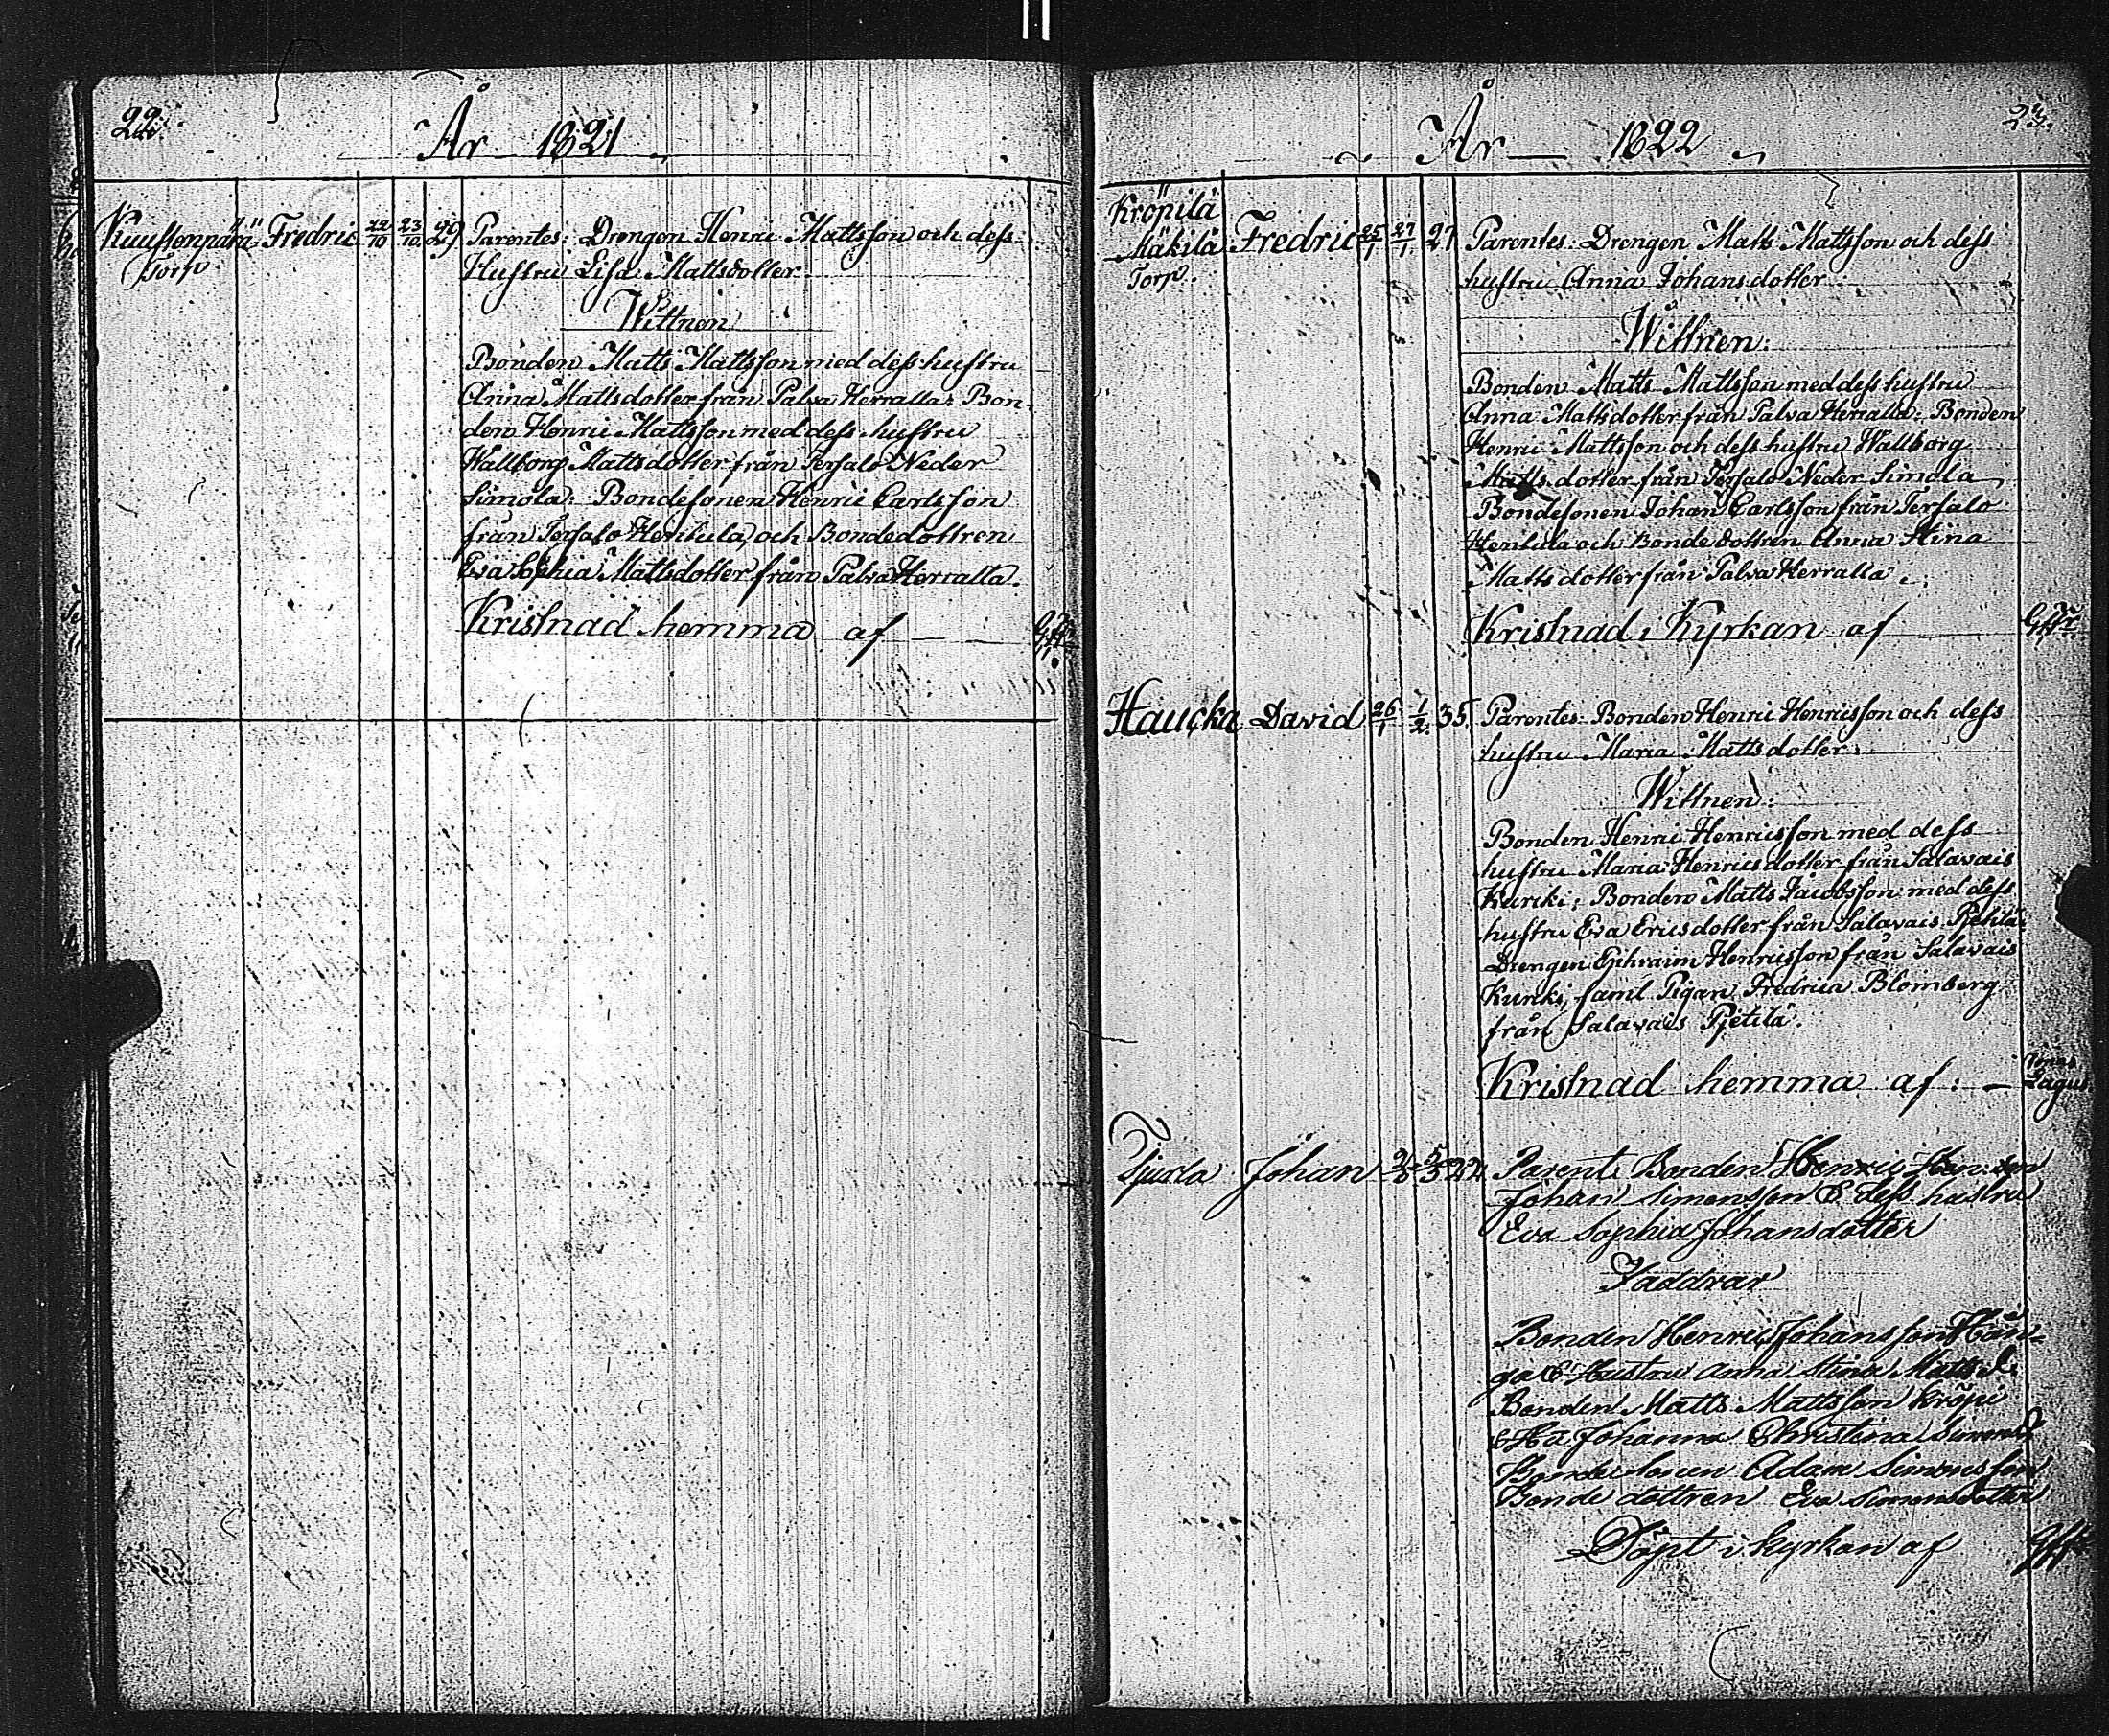 22.
År 1821
Kuustenpää Fredric 22/10 23/10 29 Parentes: Drengen Henric Mattsson och dess
Torp Hustru Lisa Mattsdotter
Wittnen
Bonden Matts Mattsson med dess hustru
Anna Mattsdotter från Palva Herralla: Bon-
den Henric Mattsson med dess hustru
Wallborg Mattsdotter från Tersalo Neder
Simola: Bondesonen Henric Carlsson
från Tersalo Heritula, och Bondedottren
Eva Sophia Mattsdotter från Palva Herralla.
Kristnad hemma af
23.
År 1822
Kröpilä
Mäkilä Fredric 25/1 27/1 27 Parentes: Drengen Matts Mattsson och dess
Torp. hustru Anna Johansdotter
Wittnen:
Bonden Matts Mattsson med dess hustru
Anna Mattsdotter från Palva Herralla: Bonden
Henric Mattsson och dess hustru Wallborg
Matts dotter från Tersalo Neder Simola
Bondesonen Johan Carlsson från Tersalo
Heritula och Bondedottren Anna Stina
Matts dotter från Palva Herralla.
Kristnad i Kyrkan af
Haucka David 26/1 1/2 35. Parentes: Bonden Henric Henricsson och dess
hustru Maria Mattsdotter:
Wittnen:
Bonden Henric Henricsson med dess
hustru Maria Henricsdotter från Salavais
Kurcki; Bonden Matts Jacobsson med dess
hustru Eva Ericsdotter från Salavais Pjetilä:
Drengen Ephraim Henricsson från Salavais
Kurcki, saml Pigan Fredrica Blomberg
från Salavais Pjetilä.
Kristnad hemma af: —
Fagus
Tjusla Johan 22 Parent. Bonden Henric
Johan Simonsson & dess hustru
Eva Sophia Johansdotter
Faddrar
Bonden Henric Johansson Hän-
gö & Hustru Anna Stina Matts d.
Bonden Matts Mattsson Kröpi
& Ha Johanna Christina Simonsd
Bondesonen Adam Simonsson
Bonde dottren Eva Simonsdotter
Döpt i kyrkan af